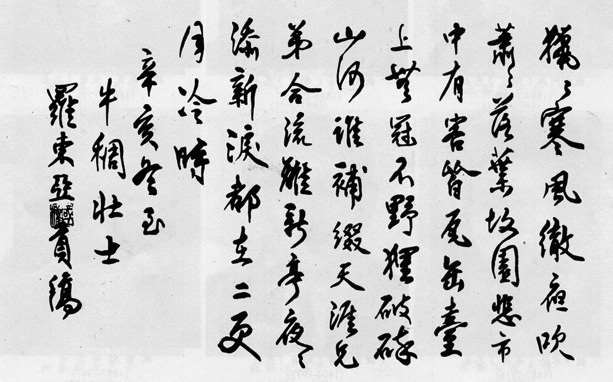 獵〻寒風徹夜吹
蕭〻落葉故園悲市
中有皆瓦缶臺
上無冠不野狸破碎
山河誰補綴天涯兄
弟合流離新亭夜〻
添新淚都在二更
月冷時
辛亥冬至
牛稠壯士
羅東亞貢稿